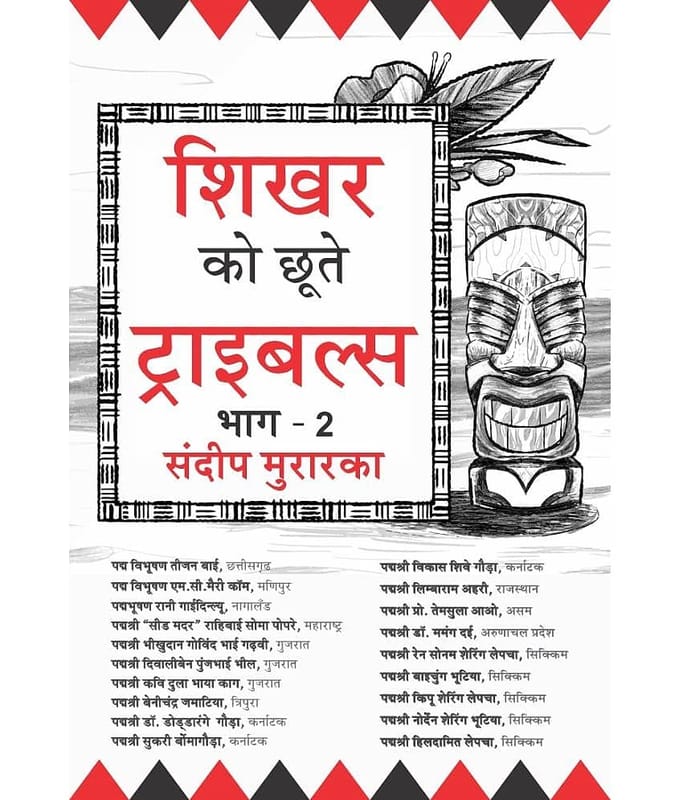 शिखर
को छूते
ट्राइबल्स
भाग - 2
संदीप मुरारका
पद्म विभूषण तीजन बाई, छत्तीसगढ़
पद्म विभूषण एम.सी.मैरी कॉम, मणिपुर
पद्मभूषण रानी गाईदिन्ल्यू, नागालैंड
पद्मश्री “सीड मदर” राहिबाई सोमा पोपरे, महाराष्ट्र
पद्मश्री भीखुदान गोविंद भाई गढ़वी, गुजरात
पद्मश्री दिवालीबेन पुंजभाई भील, गुजरात
पद्मश्री कवि दुला भाया काग, गुजरात
पद्मश्री बेनीचंद्र जमाटिया, त्रिपुरा
पद्मश्री डॉ. डोड्डारंगे गौड़ा, कर्नाटक
पद्मश्री सुकरी बोंमागौड़ा, कर्नाटक
पद्मश्री विकास शिवे गौड़ा, कर्नाटक
पद्मश्री लिम्बाराम अहरी, राजस्थान
पद्मश्री प्रो. तेमसुला आओ, असम
पद्मश्री डॉ. ममंग दई, अरुणाचल प्रदेश
पद्मश्री रेन सोनम शेरिंग लेपचा, सिक्किम
पद्मश्री बाइचुंग भूटिया, सिक्किम
पद्मश्री किपू शेरिंग लेपचा, सिक्किम
पद्मश्री नोर्देन शेरिंग भूटिया, सिक्किम
पद्मश्री हिलदामित लेपचा, सिक्किम